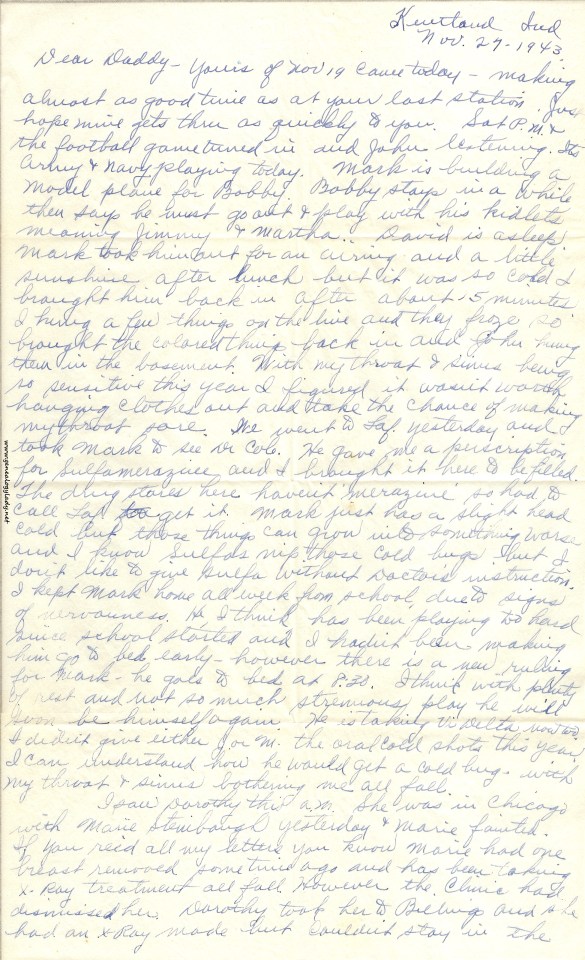 Kentland Ind
Nov. 27-1943
Dear Daddy- Yours of Nov 19 came today - making
almost as good time as at your last station. Just
hope mine gets thru as quickly to you. Sat P.M. &
the football game tuned in and John listening. It's
Army & Navy playing today. Mark is building a
model plane for Bobby. Bobby stays in a while
then says he must go out & play with his kidlets
meaning Jimmy & Martha.. David is asleep.
Mark took him out for an airing and a little
sunshine after lunch but it was so cold I
brought him back in after about 5 minutes
I hung a few things on the line and they froze so
brought the colored things back in and hung
them in the basement. With my throat & sinus being
so sensitive this year I figured it wasn't worth
hanging clothes out and take the chance of making
my throat sore. We went to Laf. yesterday and
took Mark to see Dr Cole. He gave me a puscription
for Sulfamerazine and I brought it here to be filled.
The drug stores here haven't merazine so had to
call Laf. to get it. Mark just has a slight head
cold but those things can grow into something worse
and I know Sulfas nip those cold bugs. but I
don't like to give sulfa without Doctor's instruction.
I kept Mark home all week from school, due to signs
of nervousness. He I think has been playing too hard
since school started and I hadn't been making
him go to bed early - however there is a new ruling
for Mark - he goes to bed at 8:30. I think with plenty
of rest and not so much strenuous play he will
soon be himself again. He is taking Vi Delta now too.
I didn't give either J. or M. the oral cold shots this year
I can understand how he would get a cold bug - with
my throat & sinus bothering me all fall.
I saw Dorothy this a.m. She was in Chicago
with Marie Steinbaugh yesterday & Marie fainted.
If you rec'd all my letters you know Marie had one
breast removed sometime ago and has been taking
X-Ray treatment all fall. However the Clinic had
dismissed her. Dorothy took her to Billings and she
had an X Ray made but couldn't stay in the
www.genealogybyjanet.net